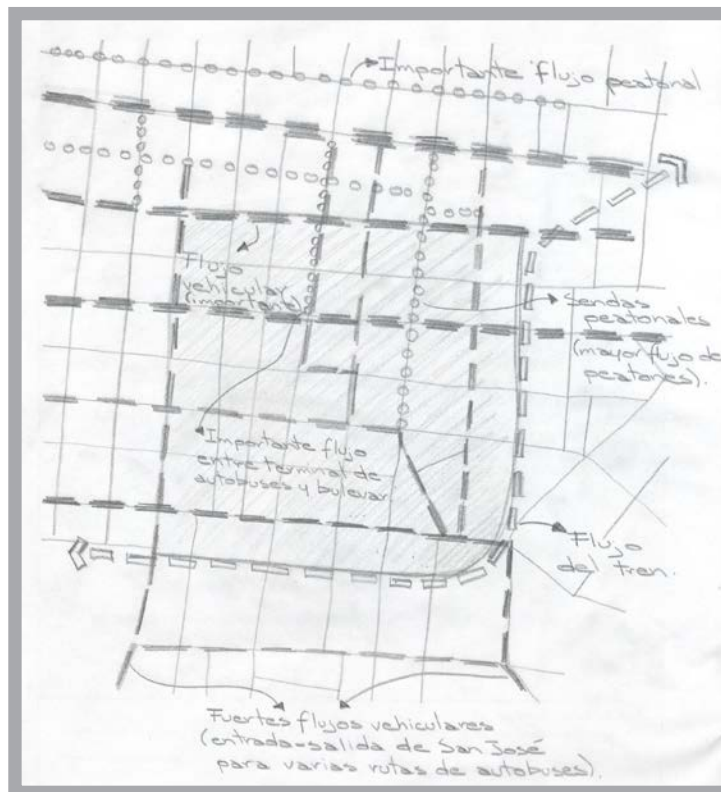 Importante flujo peatonal
Flujo
vehicular
(importante)
Sendas
peatonales
(mayor flujo de
peatones).
Importante flujo
entre terminal de
autobuses y bulevar.
Flujo
del tren.
Fuertes flujos vehiculares
(entrada-salida de San José
para varias rutas de autobuses).